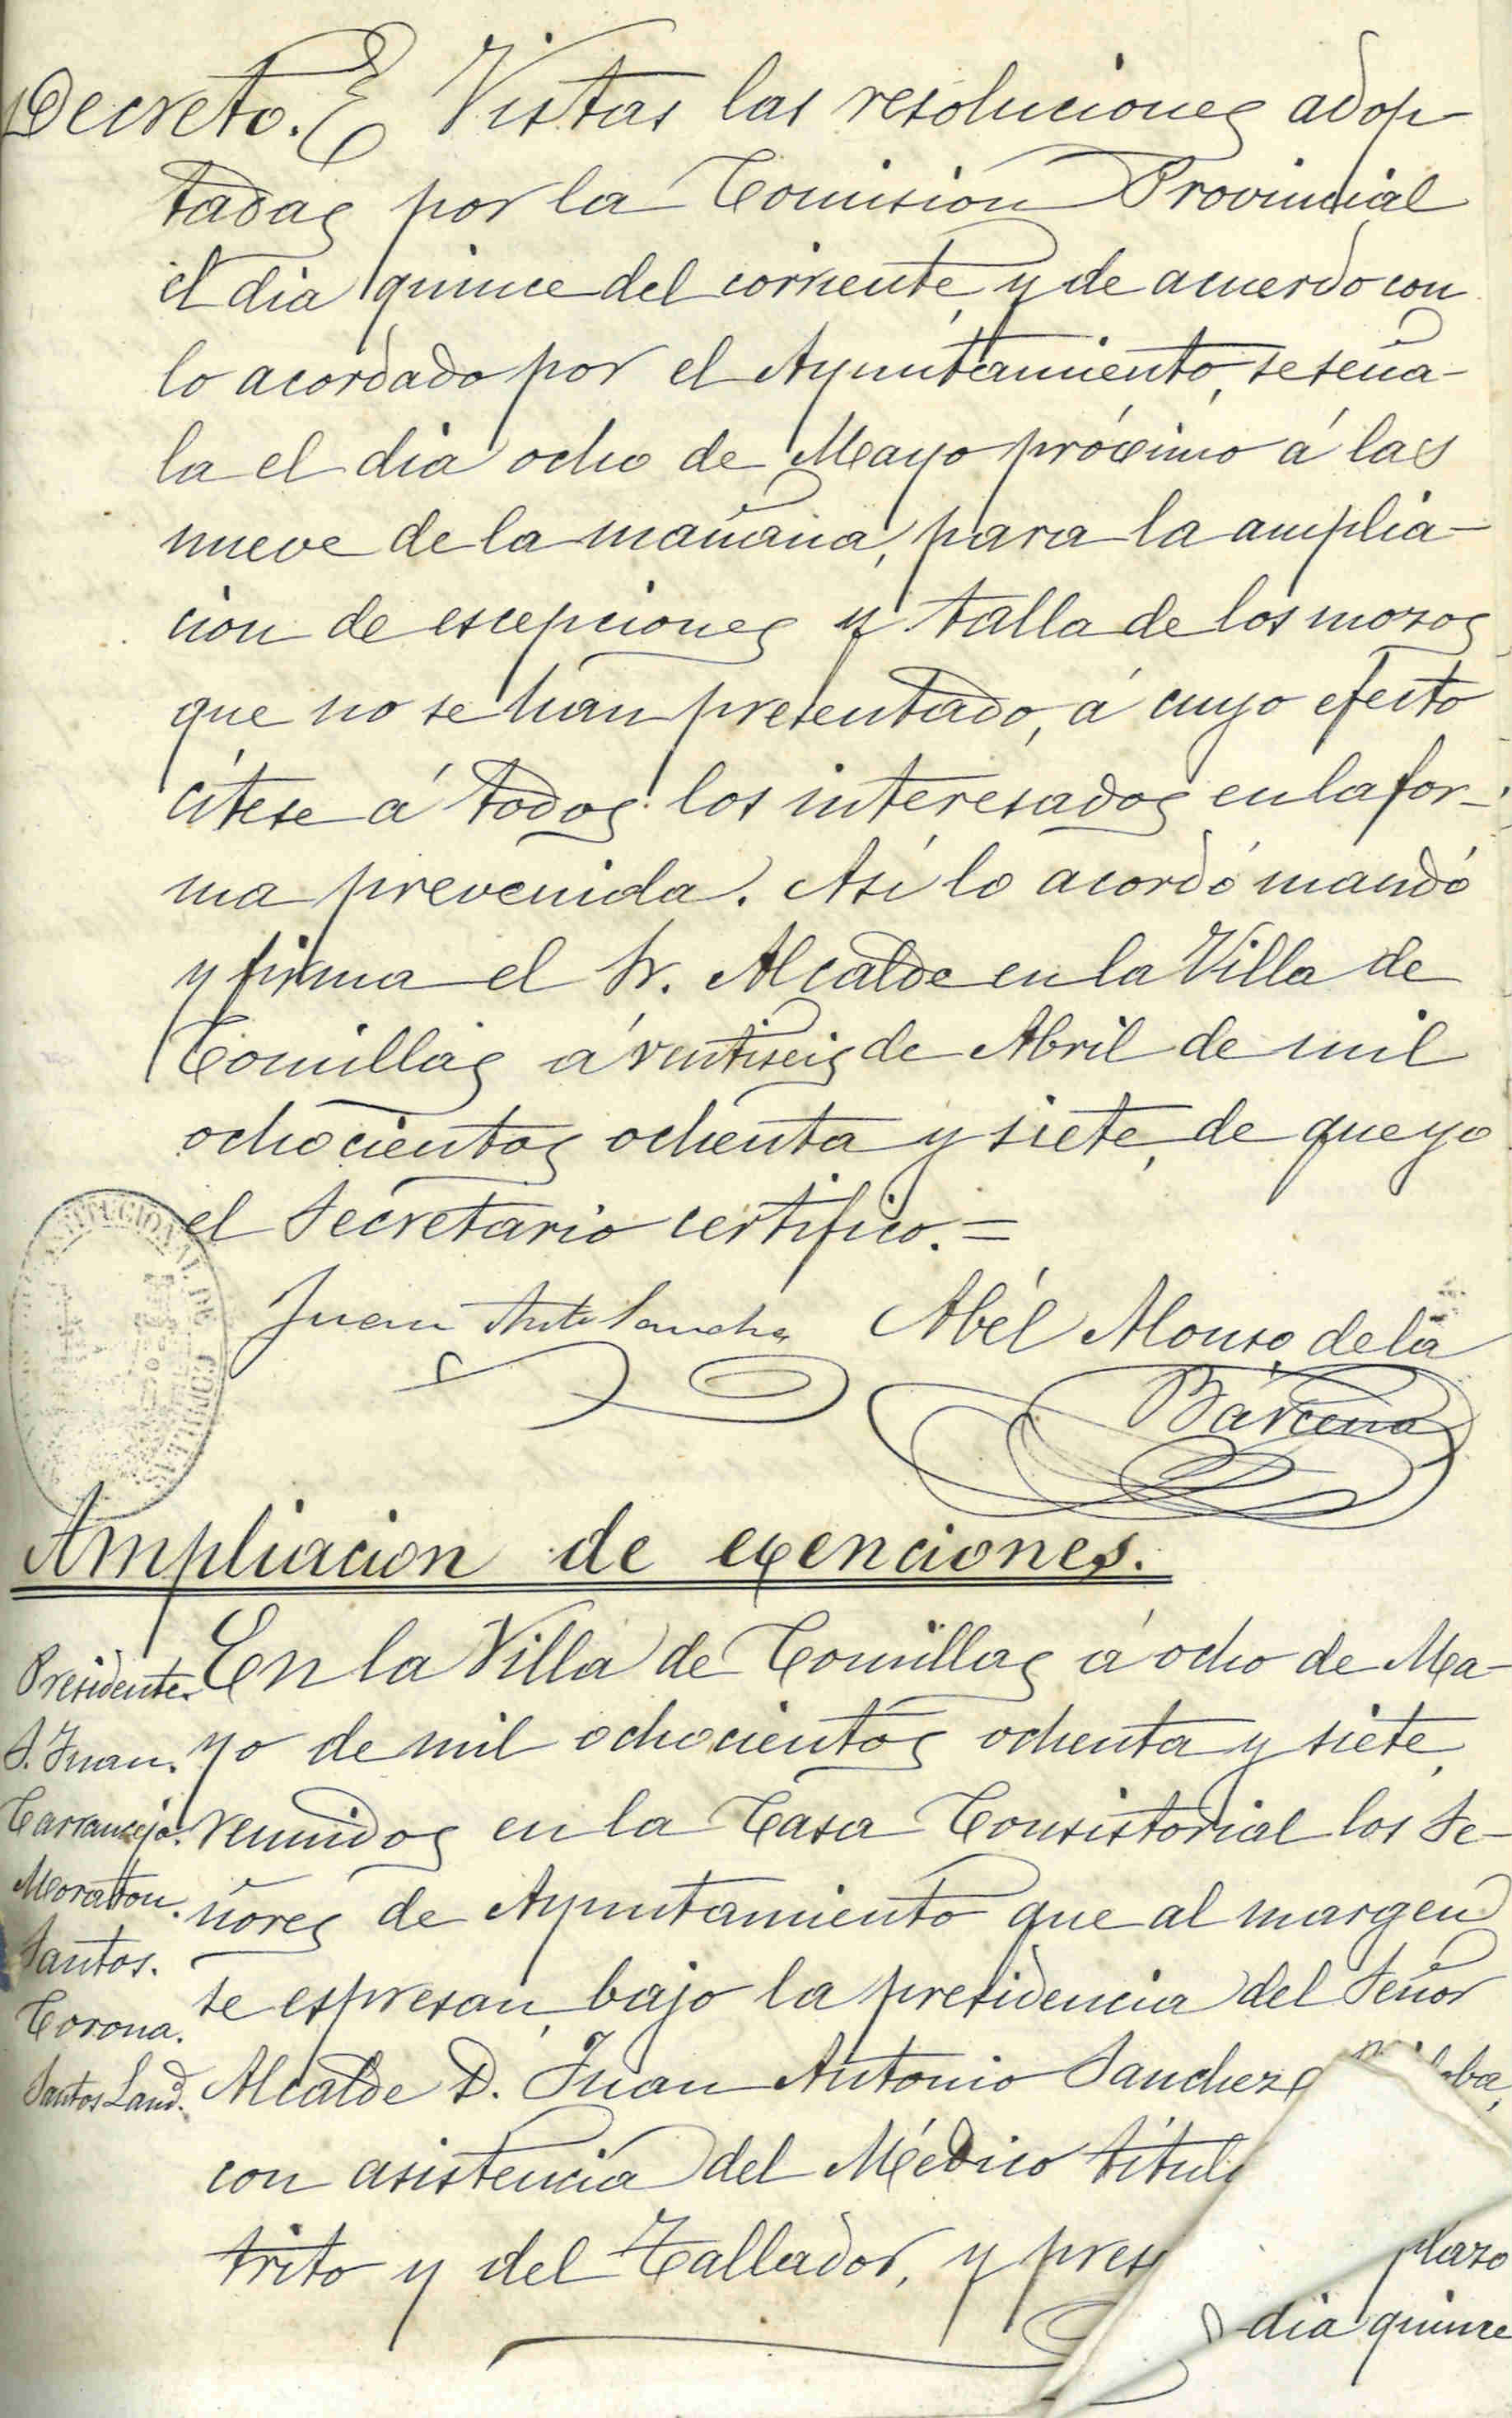 Decreto. Vistas las resoluciones adop-
tadas por la Comision Provincial
el dia quince del corriente, y de acuerdo con
lo acordado por el Ayuntamiento, se seña-
la el dia ocho de Mayo próximo á las
nueve de la mañana, para la amplia-
cion de escepciones y talla de los mozos
que no se han presentado, á cuyo efecto
cítese á todos los interesados en la for-
ma prevenida. Así lo acordó mandó
y firma el Sr. Alcalde en la Villa de
Comillas á ventiseis de Abril de mil
ochocientos ochenta y siete, de que yo
el Secretario certifico.=
Juan Anto Sanchez
Abél Alonso de la
Bárcena
Ampliacion de exenciones.
Presidente.
S. Juan.
Carranceja.
Moraton.
Santos.
Corona.
Santos Land.
En la Villa de Comillas á ocho de Ma-
yo de mil ochocientos ochenta y siete,
reunidos en la Casa Consistorial los Se-
ñores de Ayuntamiento que al margen
se espresan, bajo la presidencia del Señor
Alcalde D. Juan Antonio Sanchez
con asistencia del Médico titul
trito y del Tallador, y pres
plazo
dia quince